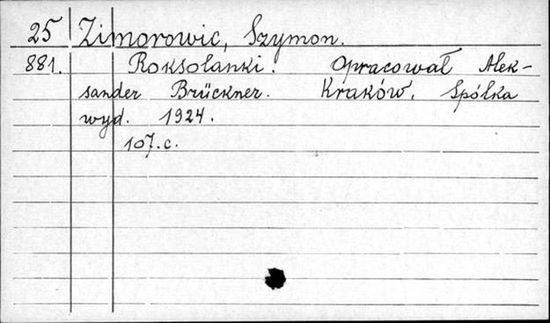 25 Zimorowic, Szymon.
881. Roksolanki. Opracował Alek-
sander Brückner. Kraków, Spólka
wyd. 1924.
107.c.